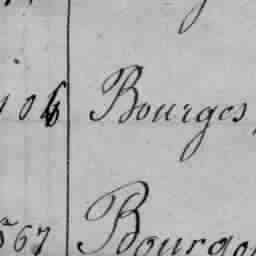 106 Bourges,
567 Bourgo